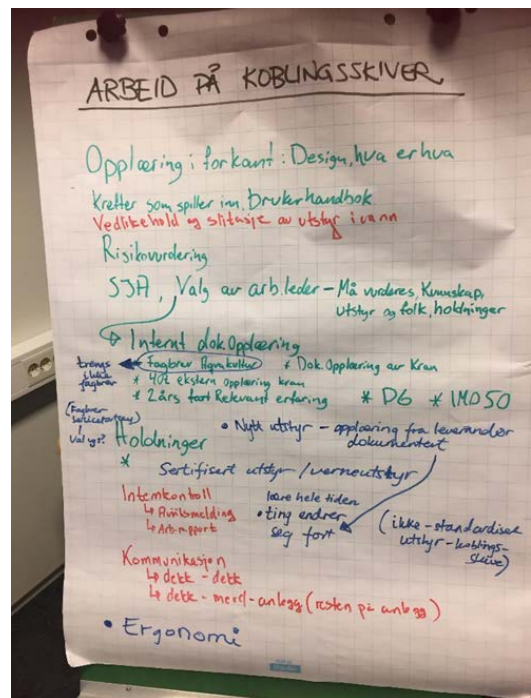 ARBEID PÅ KOBLINGSSKIVER
Opplæring i forkant: Design, hva er hva
Krefter som spiller inn, brukerhandbok
Vedlikehold og slitasje av utstyr i vann
Risikovurdering
SJA, Valg av arb.leder - Må vurderes, Kunnskap,
utstyr og folk, holdninger
Internt dok. Opplæring
trengs ikke fagbrev
Fagbrev Akvakultur * Dok. Opplæring av Kran
* 40t ekstern opplæring kran
* 2 års fart Relevant erfaring * D6 * IMO 50
(Fagbrev
Valgs?
• Nytt utstyr - opplæring fra leverandør
dokumentert
Holdninger
*
Sertifisert utstyr / verneutstyr
Internkontroll
↳ Avviksmelding
↳ Arb.rapport
lære hele tiden
• ting endrer
seg fort
(ikke-standardisert
utstyr - koblings-
skive)
Kommunikasjon
↳ dekk - dekk
↳ dekk - merd - anlegg (resten på anlegg)
• Ergonomi